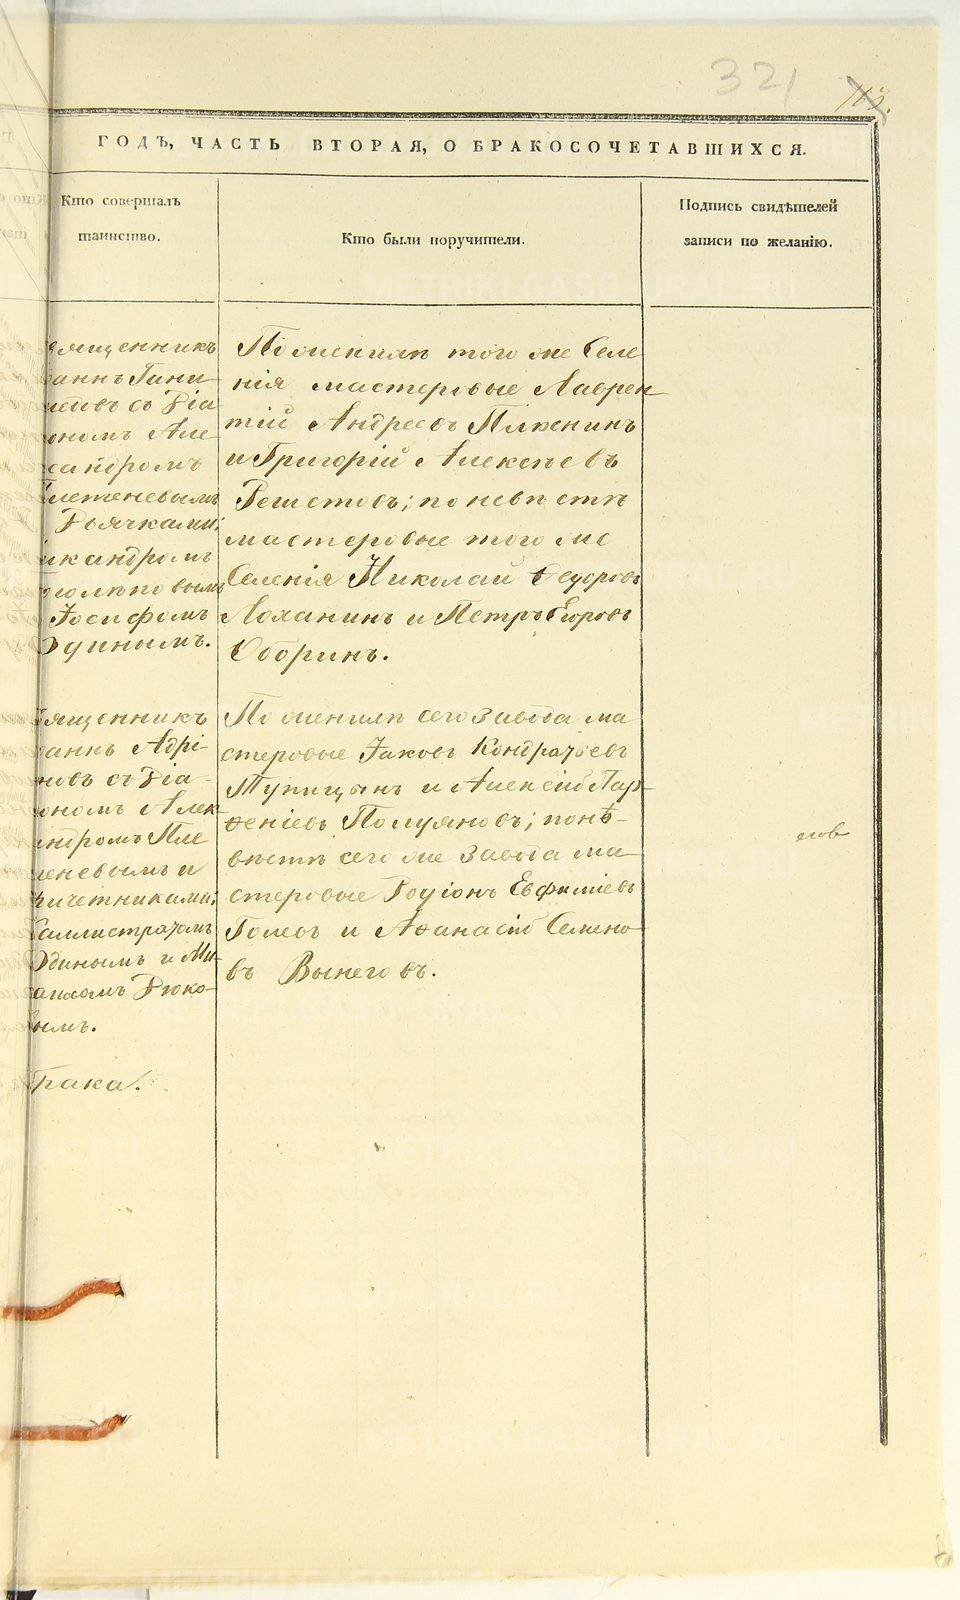 321
ГОДЪ, ЧАСТЬ ВТОРАЯ, О БРАКОСОЧЕТАВШИХСЯ.
Кто совершалъ
таинство.
Кто были поручители.
Подпись свидѣтелей
записи по желанію.
ященникъ
аннъ Гани
съ Діа
ономъ Але
сандромъ
летеневымъ
Дьячками:
икандромъ
Іосифомъ
Одинымъ.
По женихѣ того же Селе
нія мастеровые Лаврен
тій Андреевъ Плюснинъ
и Григорій Алексѣевъ
Решетовъ; по невѣстѣ
мастеровые того же
Селенія Николай Ѳедоровъ
Лоханинъ и Петръ Егоровъ
Оборинъ.
ященникъ
аннъ Адрі
новъ съ Діа
ономъ Алек
ндромъ Пле
теневымъ и
ричетниками:
Каллистратомъ
Одинымъ и Ми
хаиломъ Дюко
вымъ.
По женихѣ сего завода ма
стеровые Іаковъ Кондратьевъ
Тупицынъ и Алексій Пар
ѳеніевъ Полуяновъ; по нѣ-
вѣстѣ сего же завода ма
стеровые Родіонъ Евфиміевъ
Голевъ и Аѳанасій Семено
въ Вынеговъ.
брака.
METRIKI.GASO-URAL.RU